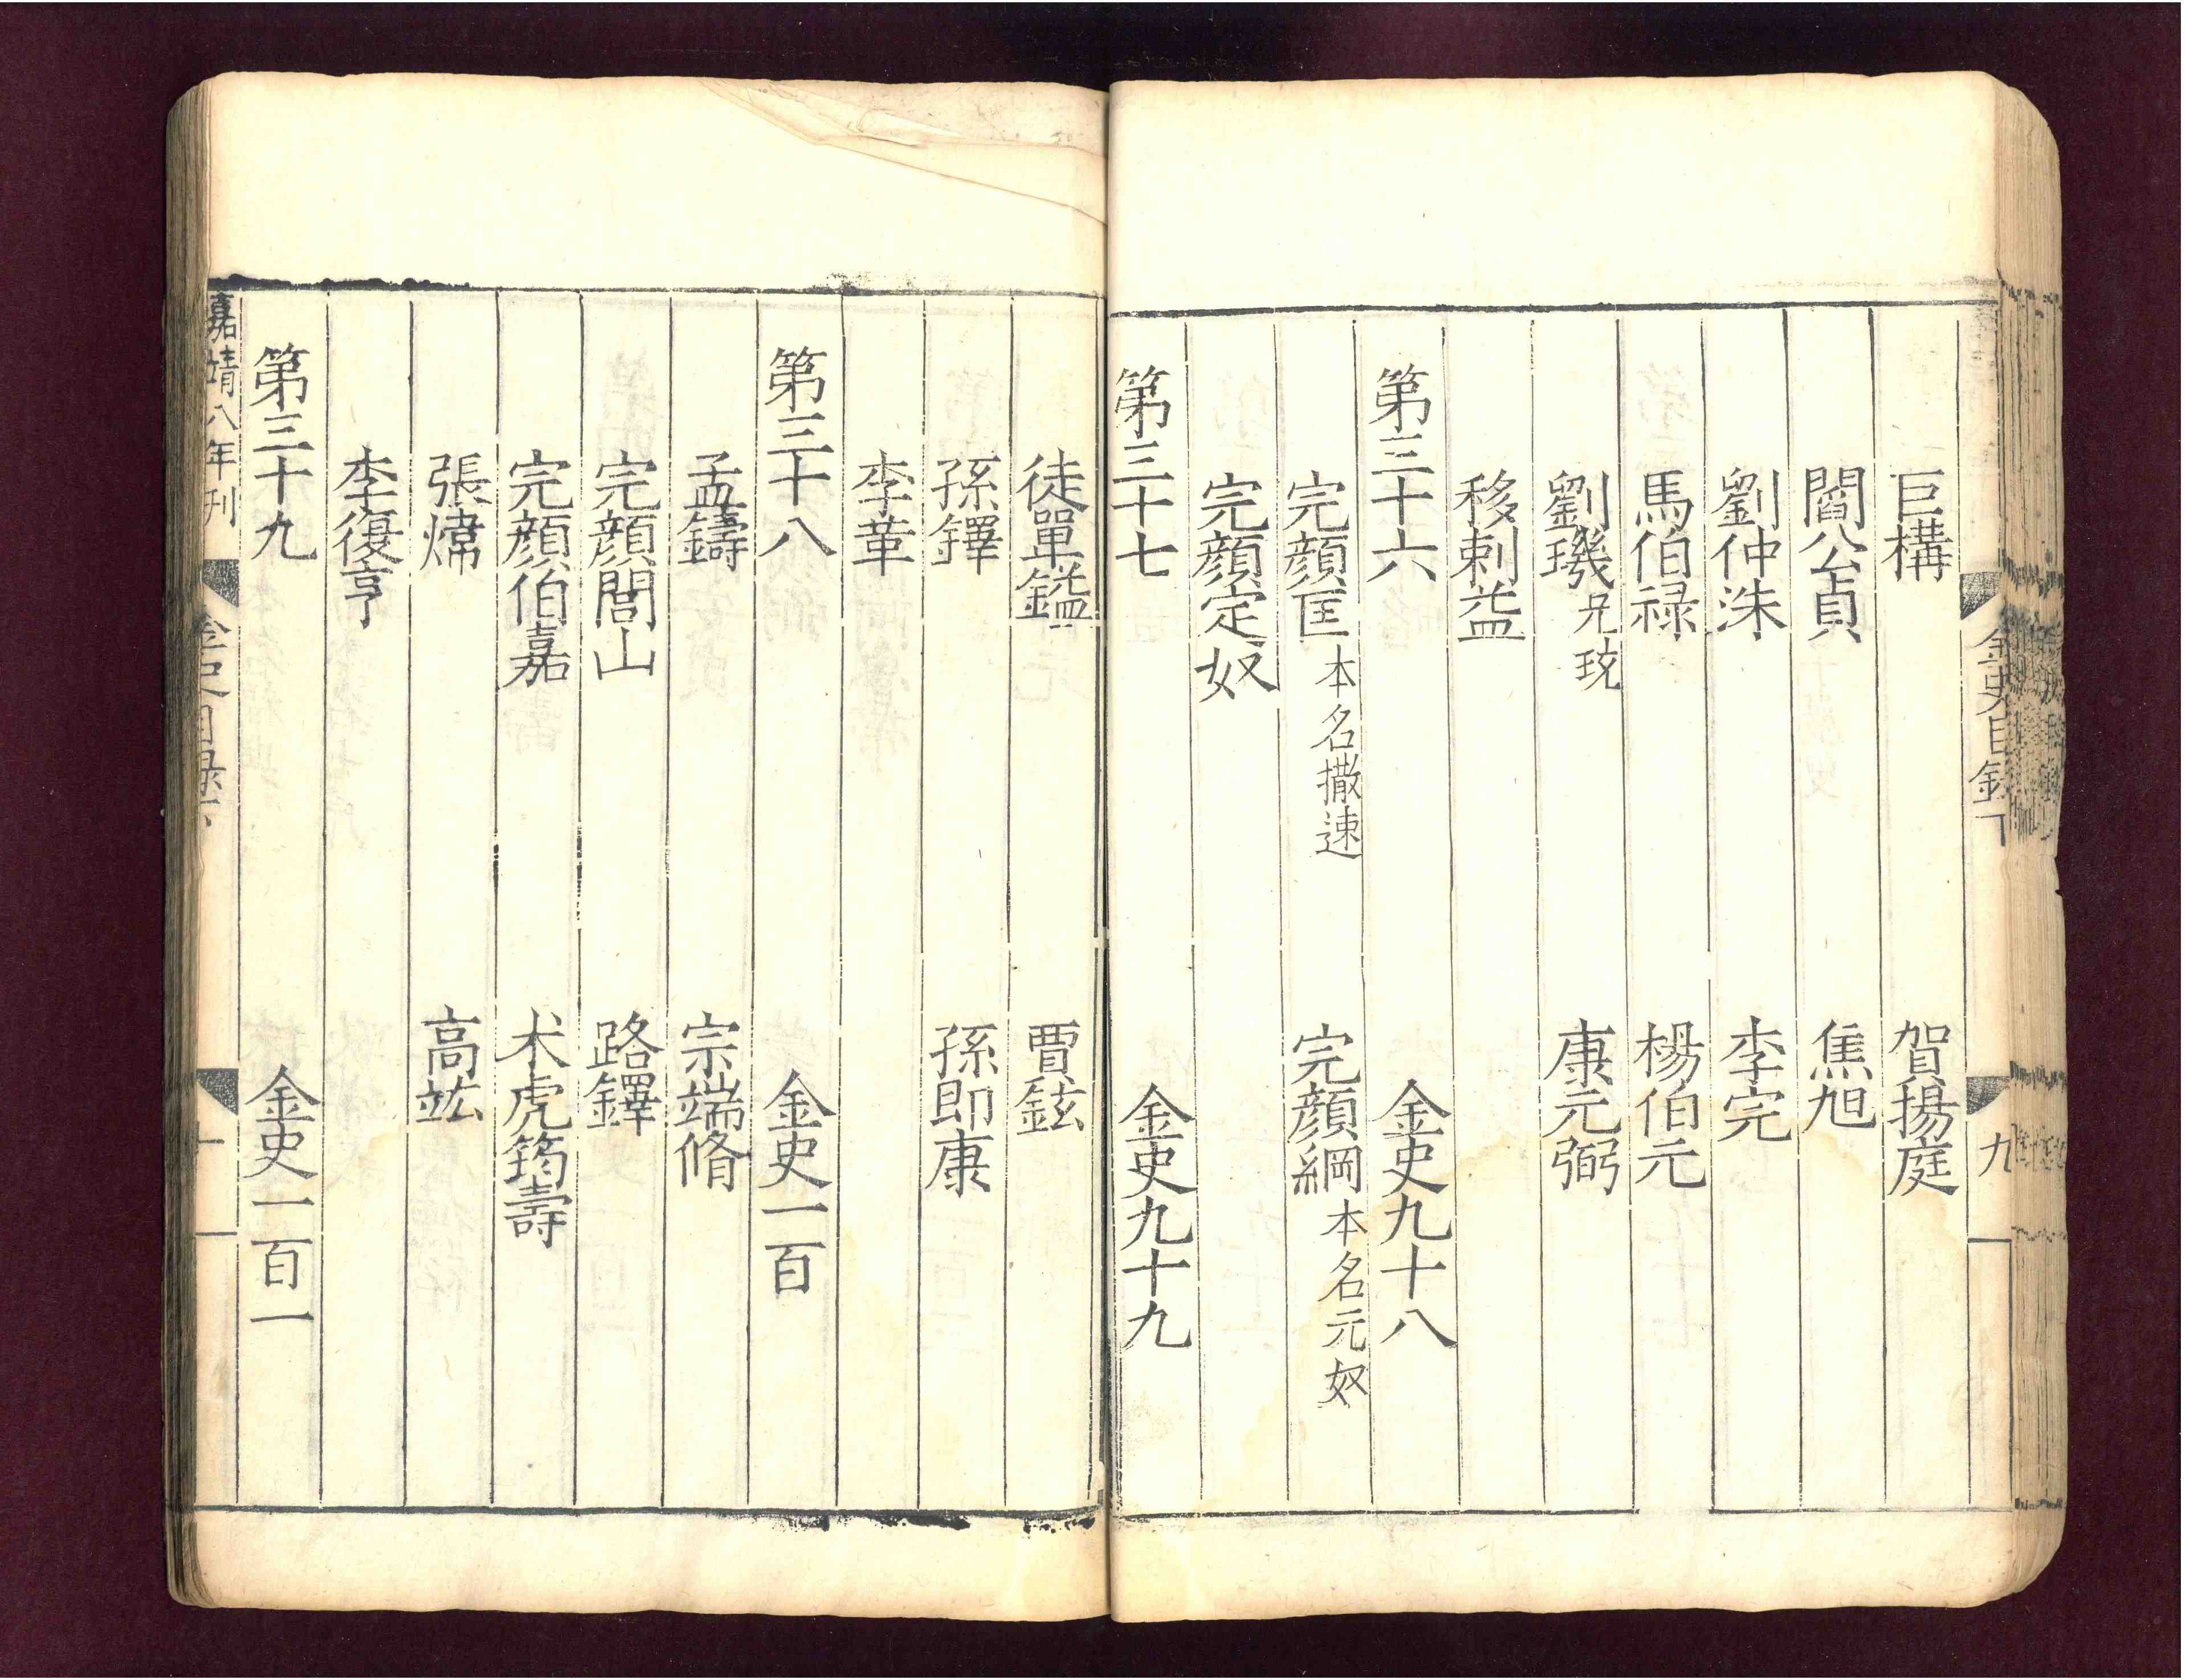 金史目錄下 九
巨構 賀揚庭
閻公貞 焦旭
劉仲洙 李完
馬伯祿 楊伯元
劉璣兄珫 康元弼
移剌益
第三十六 金史九十八
完顏匡本名撒速 完顏綱本名元奴
完顏定奴
第三十七 金史九十九
徒單鎰 賈鉉
孫鐸 孫即康
李革
第三十八 金史一百
孟鑄 宗端脩
完顏閭山 路鐸
完顏伯嘉 术虎筠壽
張煒 高竑
李復亨
第三十九 金史一百一
嘉靖八年刊 金史目錄下 十